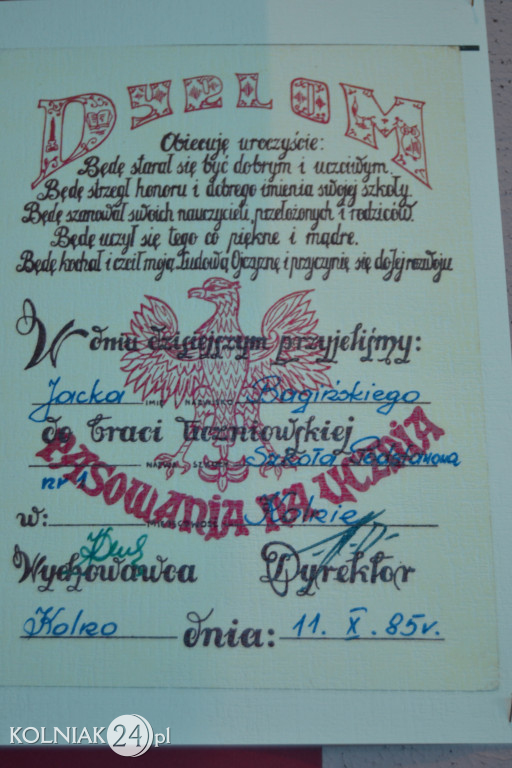 DYPLOM
Obiecuję uroczyście:
Będę starał się być dobrym i uczciwym.
Będę strzegł honoru i dobrego imienia swojej szkoły.
Będę szanował swoich nauczycieli, przełożonych i rodziców.
Będę uczył się tego co piękne i mądre.
Będę kochał i czcił moją Ludową Ojczyznę i przyczynię się do Jej rozwoju
W dniu dzisiejszym przyjeliśmy:
Jacka Bagińskiego
IMIĘ NAZWISKO
do braci uczniowskiej
Szkoła Podstawowa
NAZWA SZKOŁY
nr 1
PASOWANIA NA UCZNIA
w: Kolnie
MIEJSCOWOŚĆ
Wychowawca Dyrektor
Kolno dnia: 11. X. 85 r.
KOLNIAK24.pl